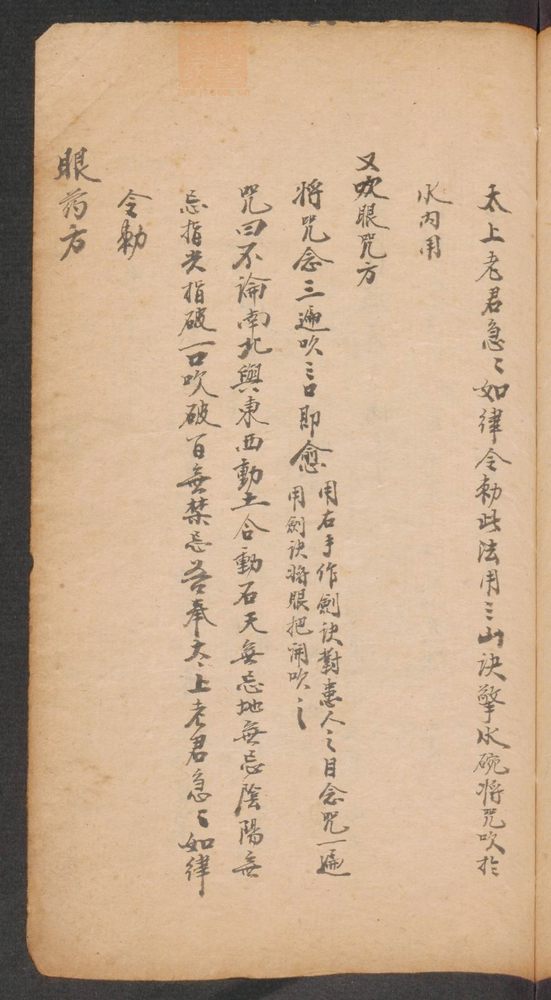 太上老君急〻如律令勑此法用三山诀擎水碗将咒吹於
水内用
又吹眼咒方
将咒念三遍吹三口即愈
用右手作劍诀對患人之目念咒一遍
用劍诀将眼把開吹之
咒曰不論南北與東西動土合動石天無忌地無忌陰陽無
忌指尖指破一口吹破百無禁忌吾奉太上老君急〻如律
令勑
眼药方